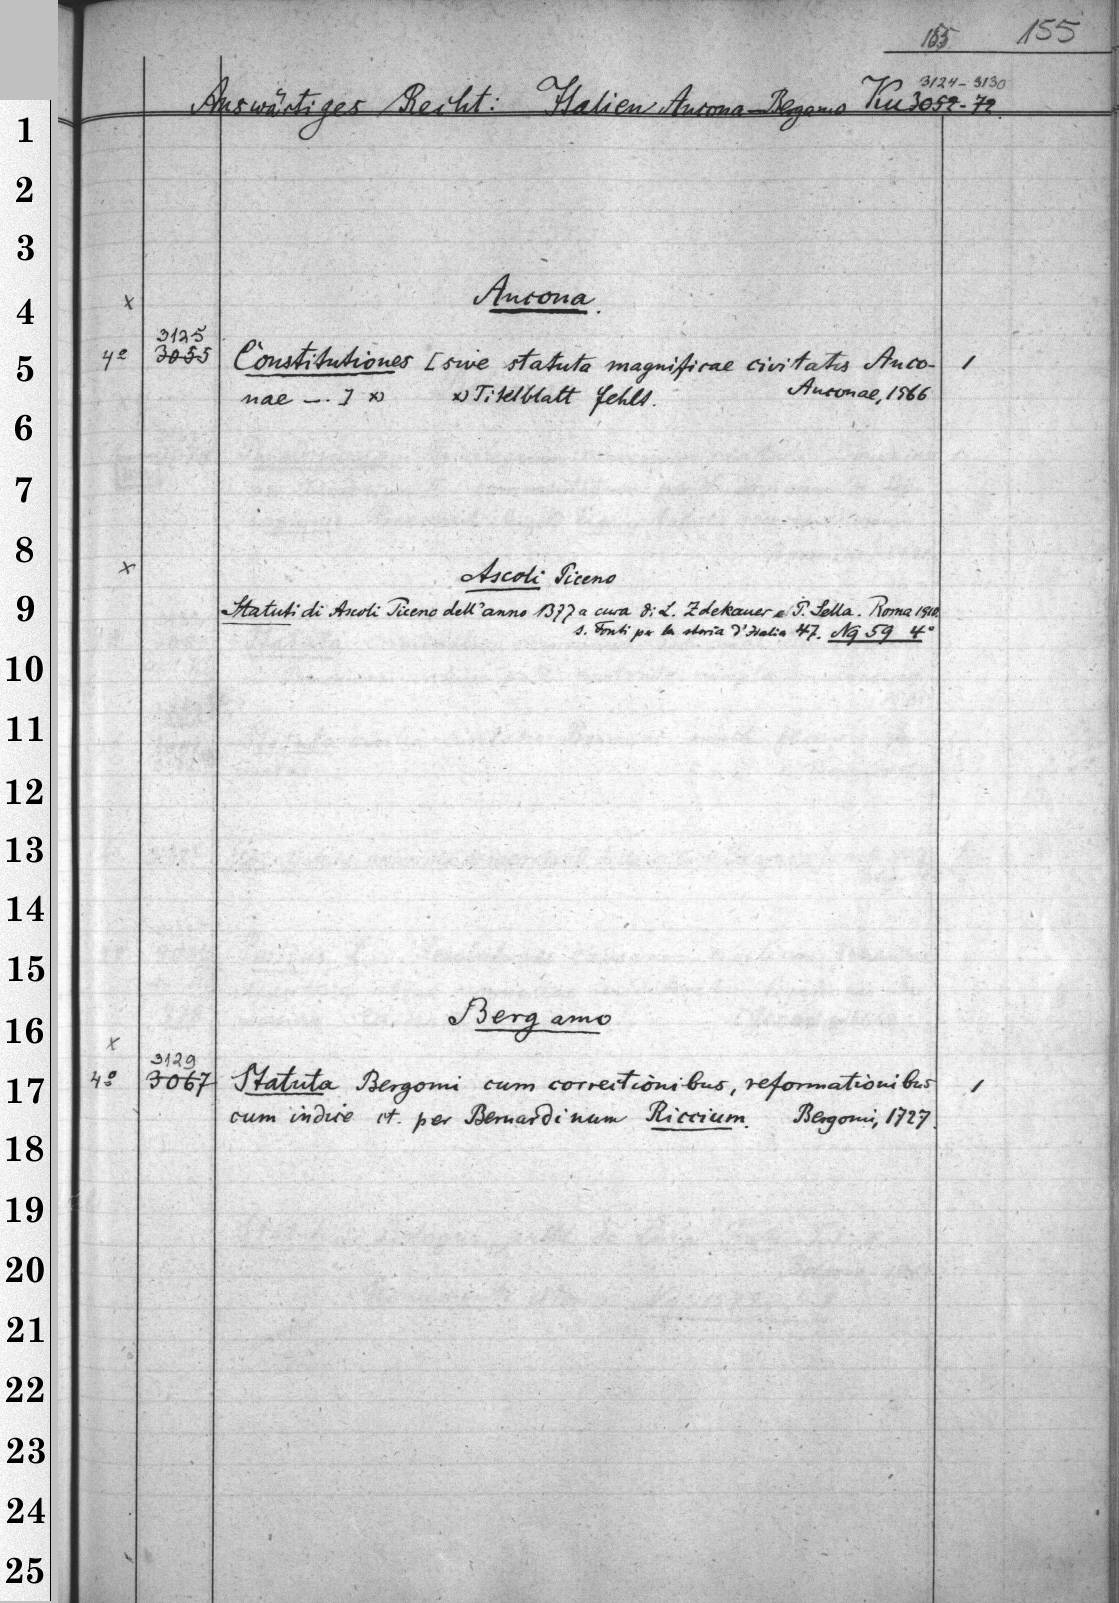 155 155
3124-3130
Auswärtiges Recht: Italien Ancona-Bergamo Ku 3052-72
1
2
3
Ancona.
4
x
3125
4° 3055 Constitutiones [sive statuta magnificae civitatis Anco- 1
5
nae -..] x) x) Titelblatt fehlt. Anconae, 1566
6
7
8
x
Ascoli Piceno
9
Statuti di Ascoli Piceno dell'anno 1377 a cura di L. Zdekauer e P. Sella. Roma 1910.
s. Fonti per la storia d'Italia 47. Ng 59 4°
10
11
12
13
14
15
Bergamo
16
x
3129
4° 3067 Statuta Bergomi cum correctionibus, reformationibus 1
17
cum indice et. per Bernardinum Riccium. Bergomi, 1727.
18
19
20
21
22
23
24
25